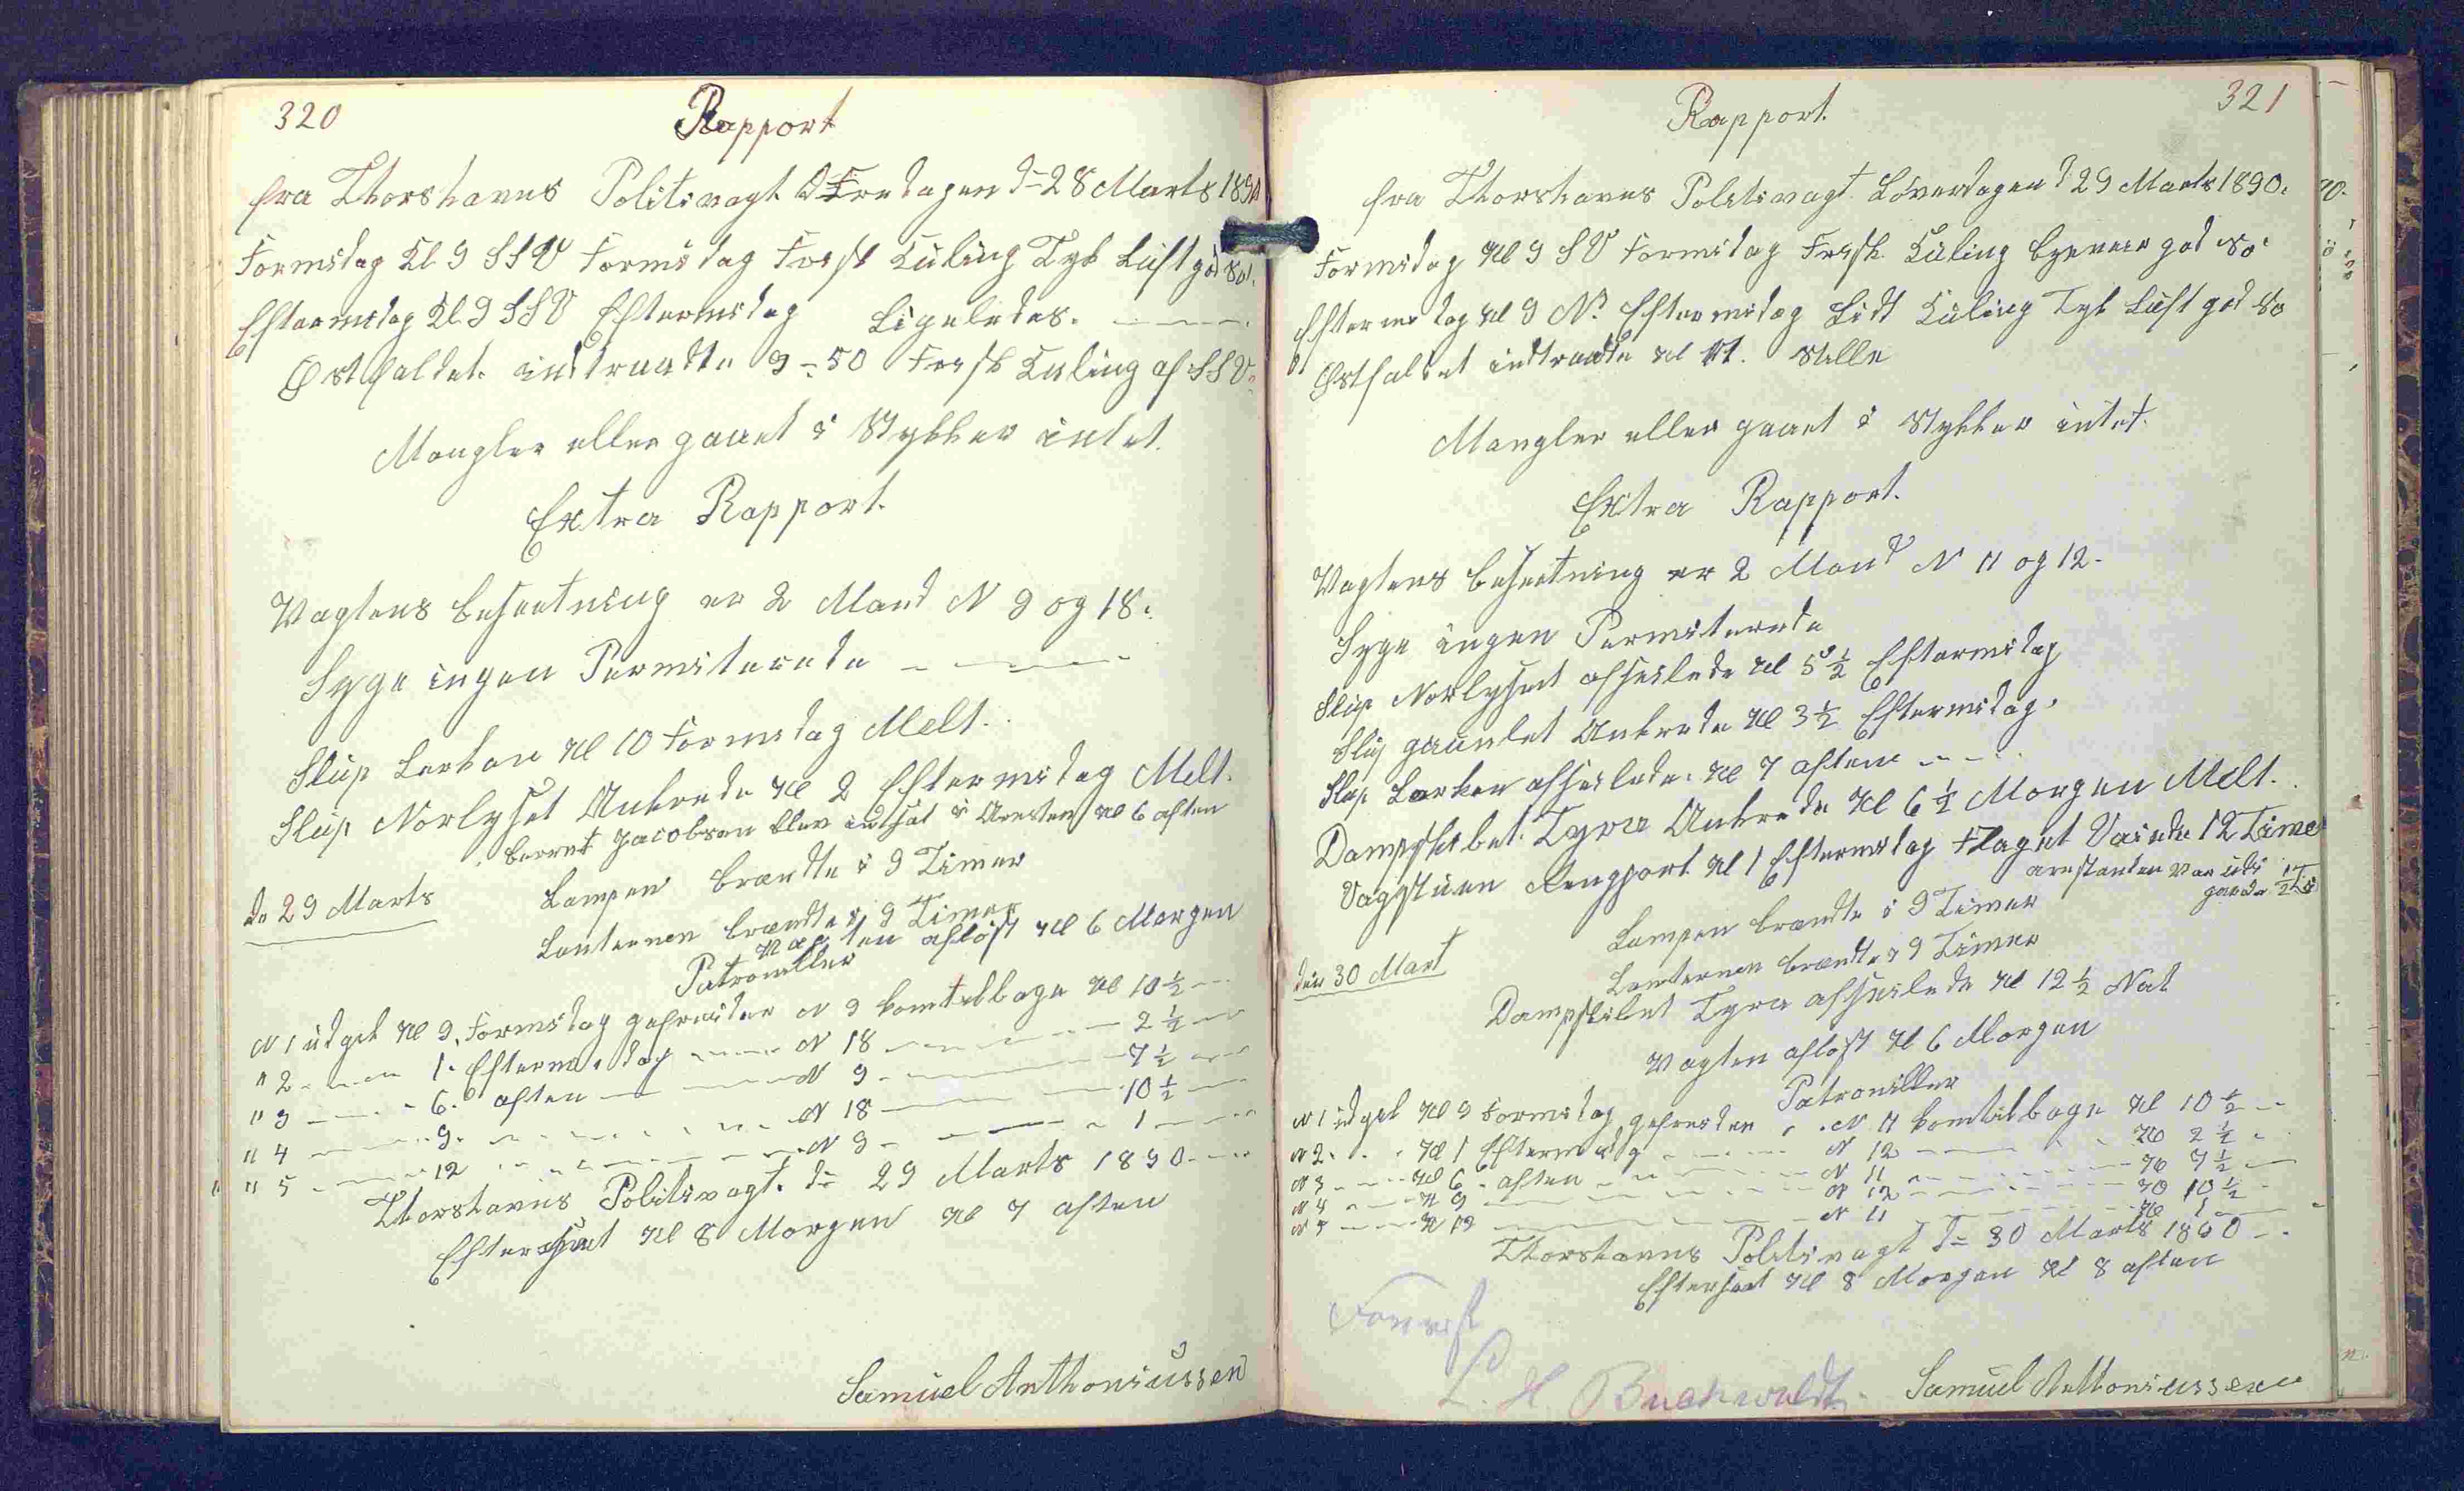 320
Rapport
fra Thorshavns Politivagt Fredagen d= 28 Marts 1890
Formidag Kl 9 SSV Formidag Frisk Kuling Tyk Luft god So.
Eftermidag Kl. 9 SSV Eftermidag Ligeledes.
Østfaldet indtraadte 9-50 Frisk Kuling af SSV.
Mangler eller gaaet i Stykker intet.
Extra Rapport.
Vagtens besætning er 2 Mand N 9 og 18.
Syge ingen Permiterede
Slup Lerken Kl 10 Formidag Melt.
Slup Norlyset Ankrede Kl 2 Eftermidag Melt.
Berent Jacobsen blev indsat i Aresten Kl 6 aften
d. 29 Marts
Lampen brændte i 9 Timer
Lanternen brændte i 9 Timer
Vagten afløst Kl 6 Morgen
Patrouiller
N 1 udgik Kl 9. Formidag gefreider N 9 komtilbage Kl 10½
" 2 1. Eftermidag N 18 2½
" 3 6. aften N 9 7½
" 4 9. N 18 10½
" 5 12 N 9 1
Thorshavns Politivagt. d= 29 Marts 1890
Efterseet Kl 8 Morgen Kl 7 aften
Samuel Anthoniussen
321
Rapport.
fra Thorshavns Politivagt Løverdagen d 29 Marts 1890.
Formidag Kl 9 SV Formidag Frisk Kuling byeveir god So
Eftermidag Kl 9 N. Eftermidag Lidt Kuling Tyk Luft god So
Østfaldet indtraadte Kl 11. Stille
Mangler eller gaaet i Stykker intet.
Extra Rapport.
Vagtens besætning er 2 Mand N 11 og 12.
Syge ingen Permiterede
Slup Norlyset afseilede Kl 5½ Eftermidag
Slup gaunlet Ankrede Kl 3½ Eftermidag.
Slup Lærken afseilede. Kl 7 aften
Dampskibet. Tyra Ankrede Kl 6½ Morgen Melt.
Vagstuen Rengjort Kl 1 Eftermidag Flaget Vaiede 12 Timer
arestanten var udi
gaarde ½ T
Lampen brændte i 9 Timer
den 30 Mart
Lanternen brændte i 9 Timer
Dampskibet Tyra afseilede Kl 12½ Nat
Vagten afløst Kl 6 Morgen
Patrouiller
N 1 udgik Kl 9 Formidag gefreider N 11 komtilbage Kl 10½
N 2 Kl 1 Eftermidag N 12 Kl 2½
N 3 Kl 6 aften N 11 Kl 7½
N 4 Kl 9 N 12 Kl 10½
N 5 Kl 12 N 11 Kl 1
Thorshavns Politivagt d= 30 Marts 1890
Efterseet Kl 8 Morgen Kl 8 aften
H Buchwaldt.
Samuel Anthoniussen